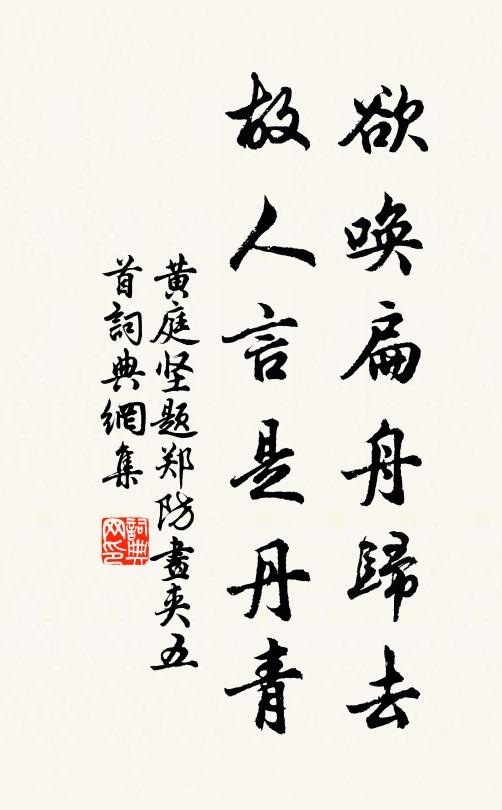 欲唤扁舟歸去
故人言是丹青
黄庭坚题郑防畫夹五
首詞典網集
詞典网印